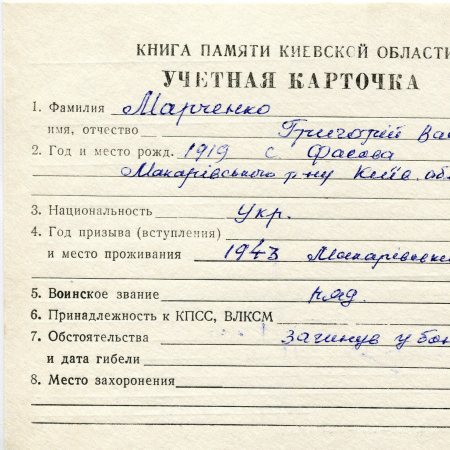 КНИГА ПАМЯТИ КИЕВСКОЙ ОБЛАСТИ
УЧЕТНАЯ КАРТОЧКА
1. Фамилия Марченко
имя, отчество Григорій Вас
2. Год и место рожд. 1919 с. Фасова
Макарівського р-ну Київ. обл
3. Национальность укр.
4. Год призыва (вступления)
и место проживания 1943 Макарівськ
5. Воинское звание ряд.
6. Принадлежность к КПСС, ВЛКСМ
7. Обстоятельства загинув у бою
и дата гибели
8. Место захоронения